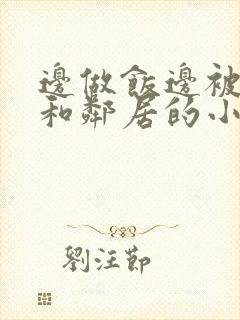 邊做飯邊被
和鄰居的小
劉汪節